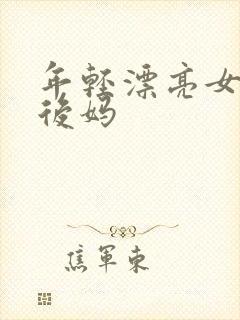 年轻漂亮女
後妈
焦军東